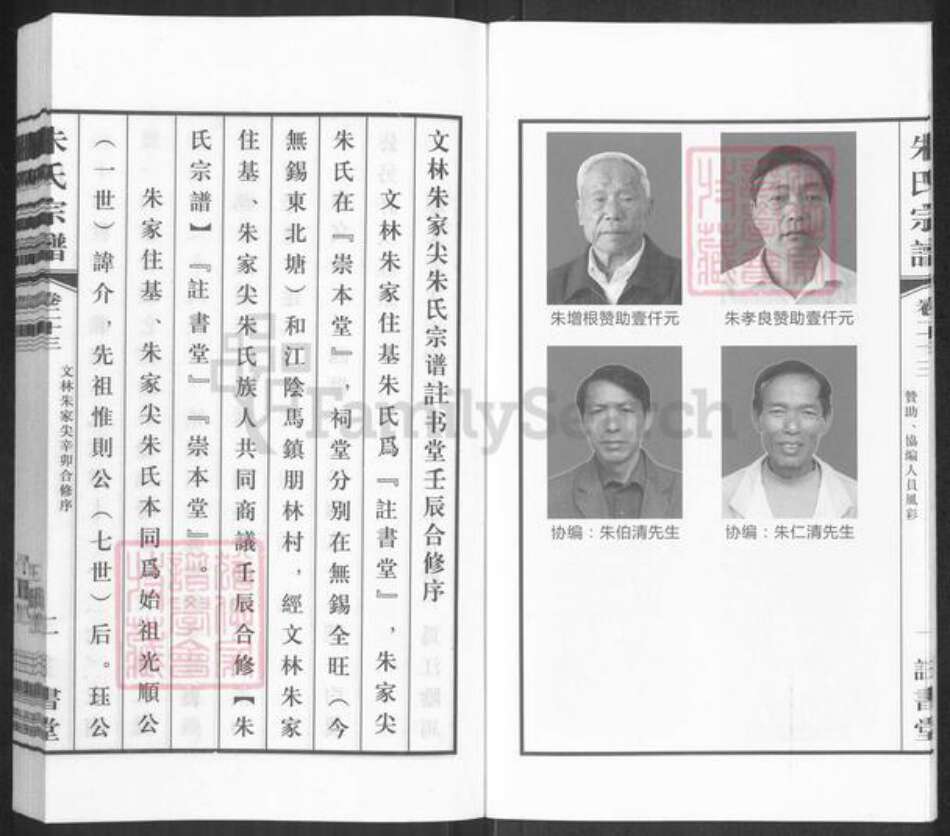 朱氏宗譜
卷二十三
贊助、協編人員風彩
一
註書堂
朱增根赞助壹仟元
朱孝良赞助壹仟元
协编：朱伯清先生
协编：朱仁清先生
文林朱家尖朱氏宗谱註书堂壬辰合修序
文林朱家住基朱氏爲『註書堂』，朱家尖
朱氏在『崇本堂』，祠堂分别在無錫全旺（今
無錫東北塘）和江陰馬鎮朋林村，經文林朱家
住基、朱家尖朱氏族人共同商議壬辰合修【朱
氏宗譜】『註書堂』『崇本堂』。
朱家住基、朱家尖朱氏本同爲始祖光順公
（一世）諱介，先祖惟則公（七世）后。珏公
朱氏宗譜
卷二十三
文林朱家尖辛卯合修序
二
書堂
FamilySearch